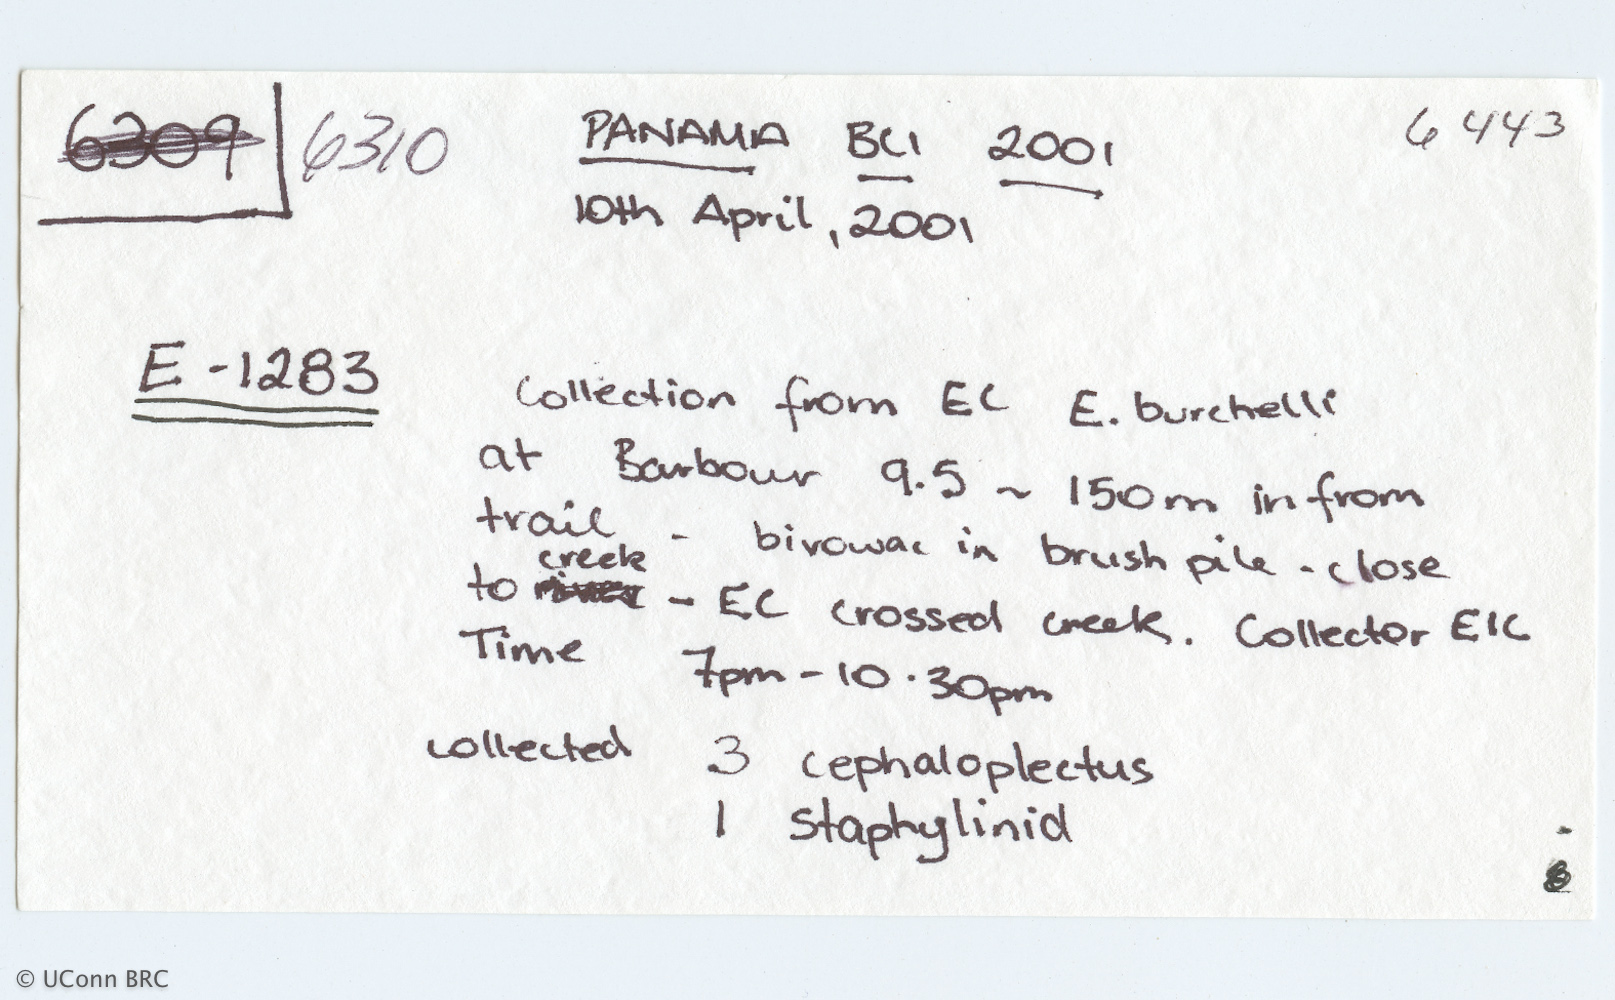 6309 6310 PANAMA BCI 2001 6443
10th April, 2001
E-1283
Collection from EC E. burchelli
at Barbour 9.5 ~ 150m in from
trail - bivowac in brush pile - close
creek
to river - EC crossed creek. Collector EIC
Time 7pm - 10.30pm
collected 3 cephaloplectus
1 staphylinid
8
© UConn BRC